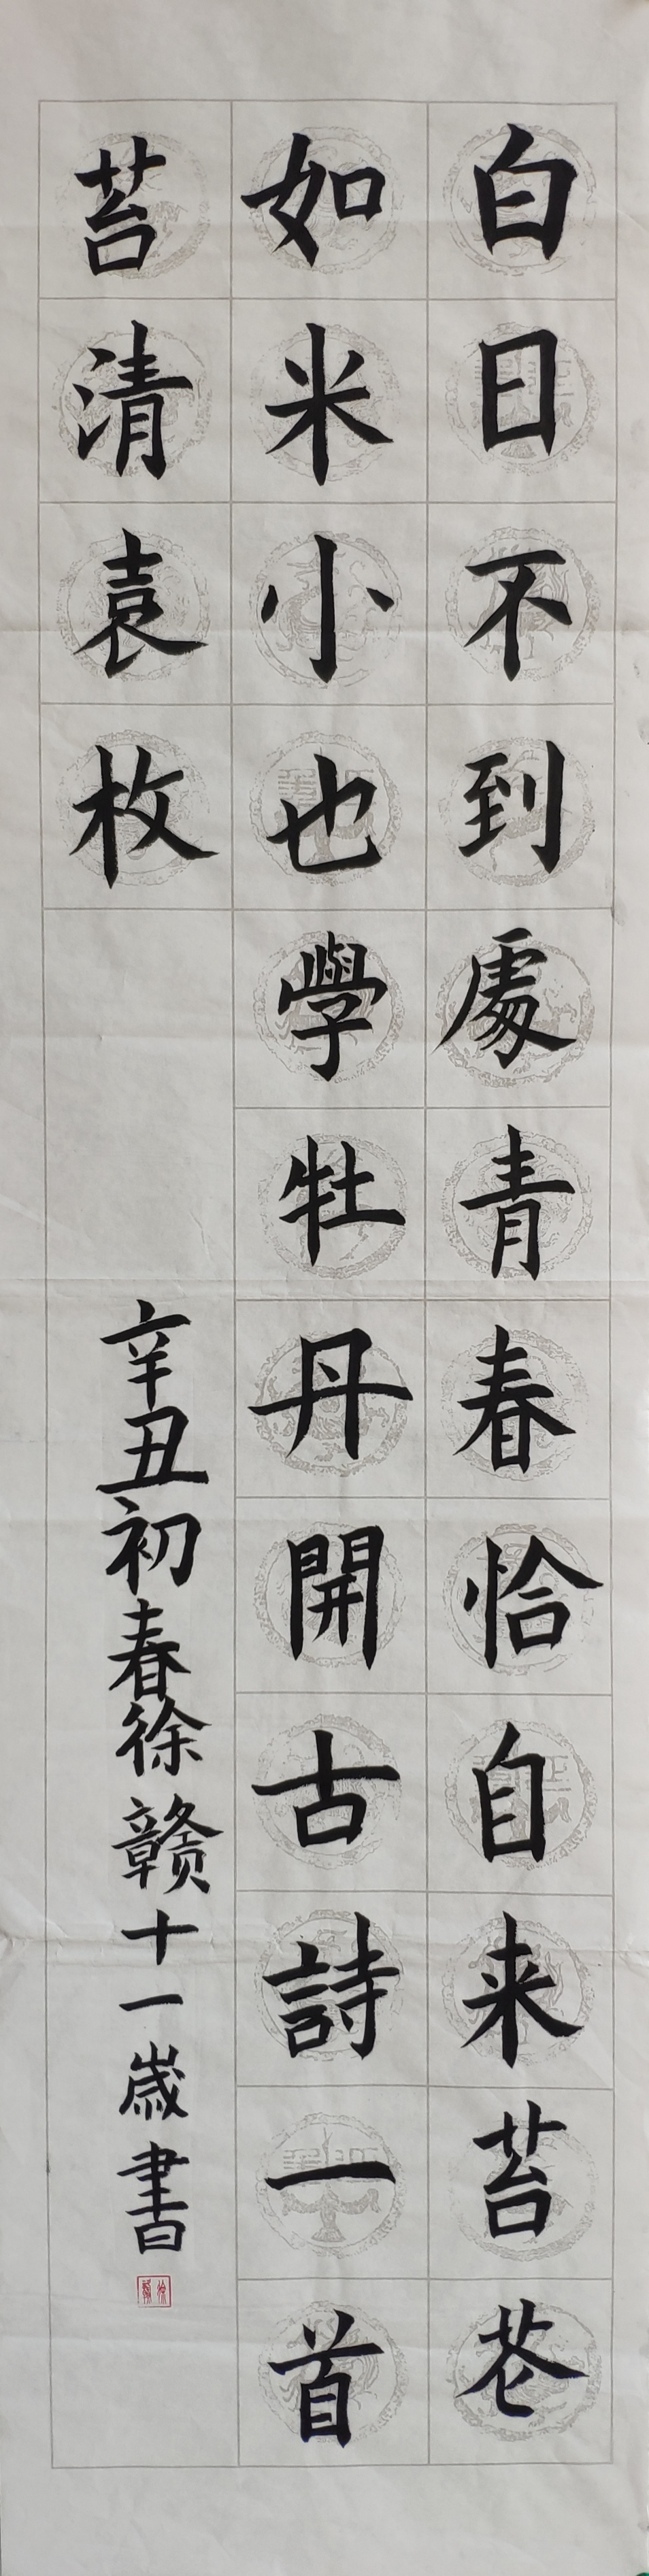 白日不到處青春恰自来苔花
如米小也學牡丹開古詩一首
苔清袁枚
辛丑初春徐赣十一歲書